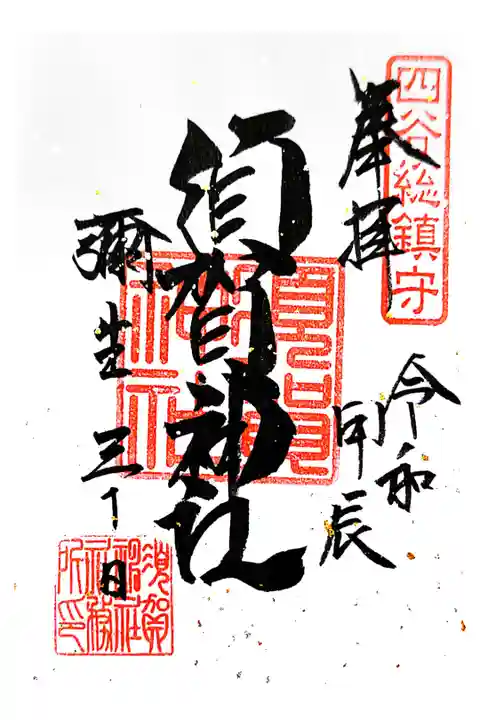 四谷総鎮守
奉拝
令和
甲辰
須賀神社
彌生三十日
須賀
神社
社務
所印